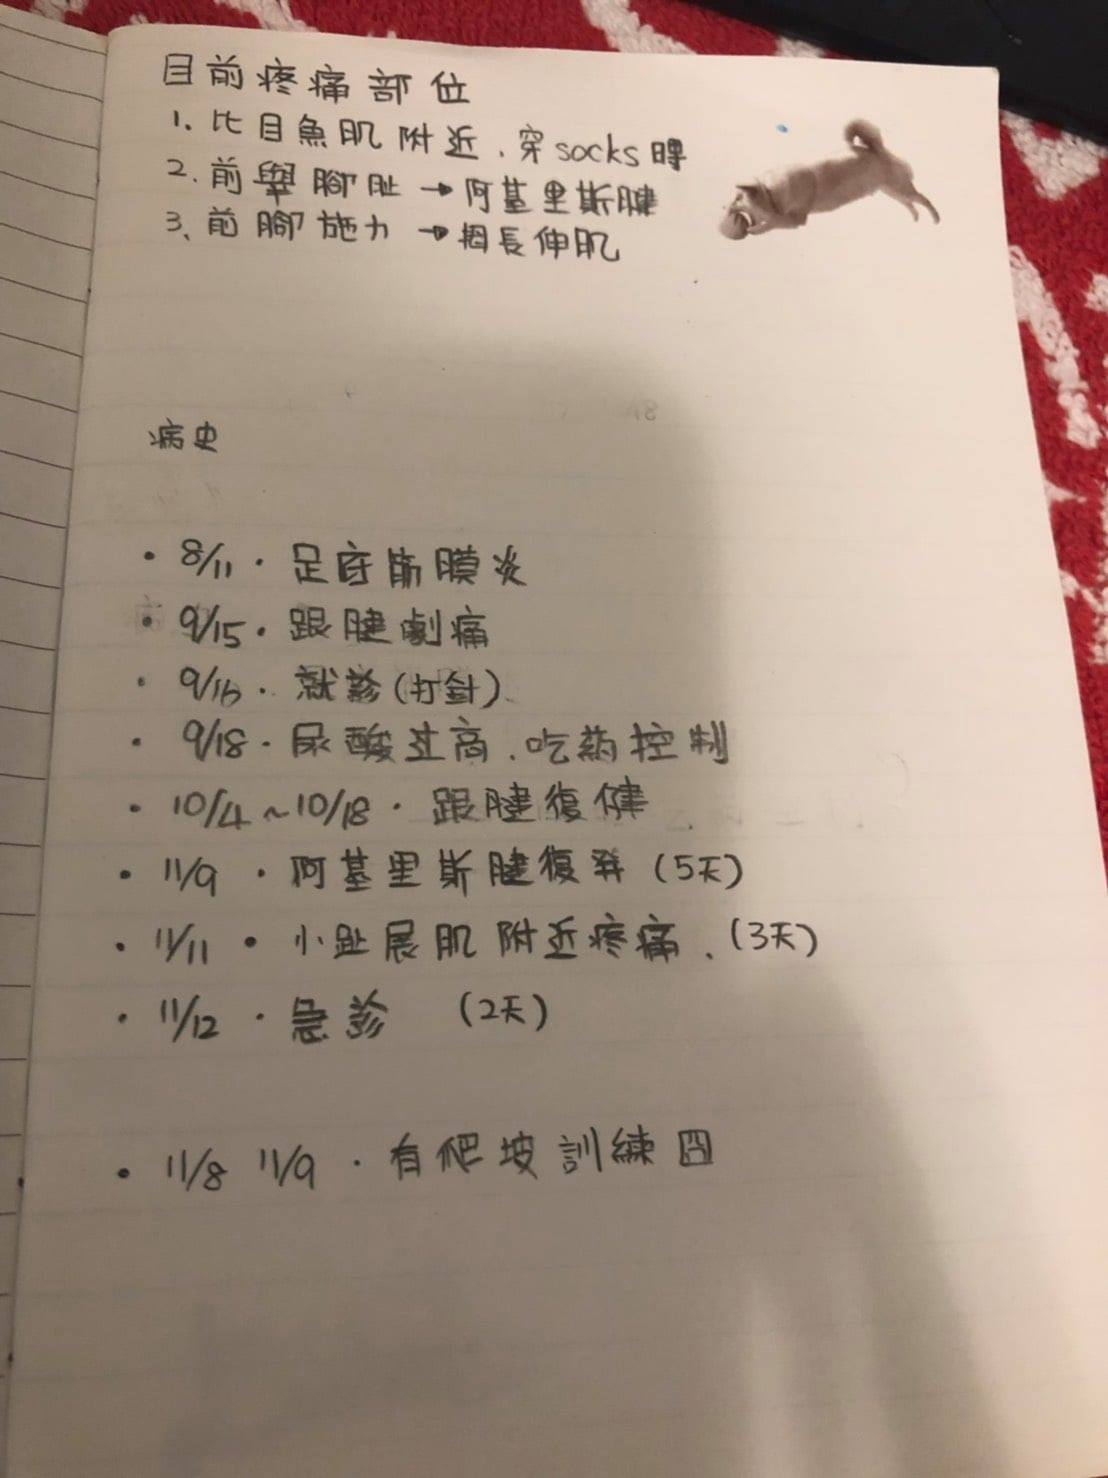 目前疼痛部位
1. 比目魚肌附近、穿socks時
2. 前舉腳趾→阿基里斯腱
3、前腳施力→拇長伸肌
病史
· 8/11 · 足底筋膜炎
· 9/15 · 跟腱劇痛
· 9/16 · 就診(打針)
· 9/18 · 尿酸过高、吃药控制
· 10/4~10/18 · 跟腱復健
· 11/9 · 阿基里斯腱復発 (5天)
· 11/11 · 小趾展肌附近疼痛、(3天)
· 11/12 · 急診 (2天)
· 11/8 11/9 · 有爬坡訓練囧